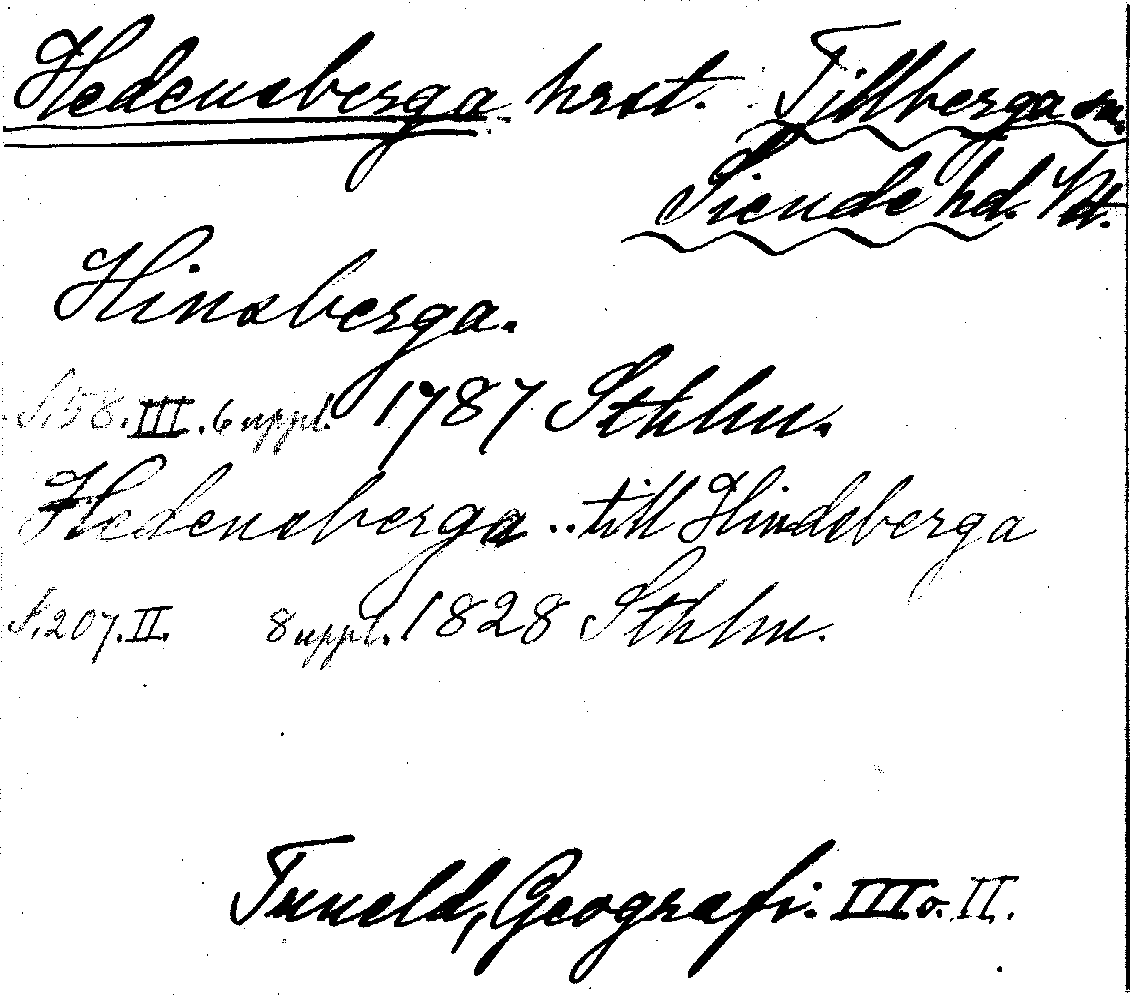 Hedensberga hrst. Tillberga sn.
Siende hd. Vstm.
Hinsberga.
S. 58. III. 6 uppl. 1787 Sthlm.
Hedensberga .. till Hindsberga
S. 207. II. 8 uppl. 1828 Sthlm.
Tuneld, Geografi. III o. II.